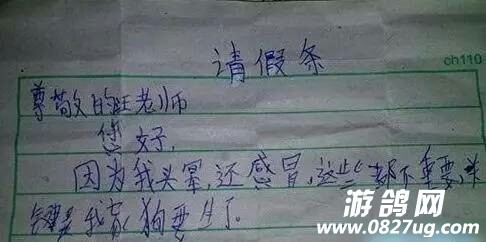 请假条
ch110
尊敬的旺老师
您好,
因为我头晕,还感冒,这些都不重要,关
键是我家狗要生了。
游鸽网
www.0827ug.com